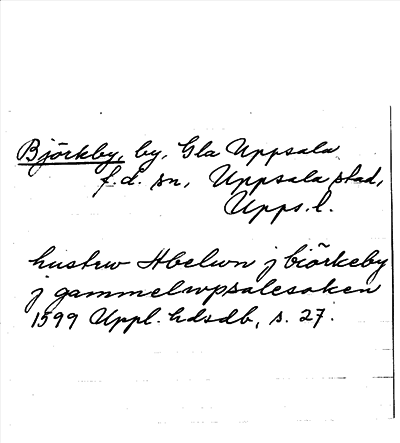 Björkby, by, Gla Uppsala
f.d. sn, Uppsala stad,
Upps. l.
hustrw Abelwn j biörkeby
j gammelwpsalesoken
1599 Uppl. hdsdb, s. 27.